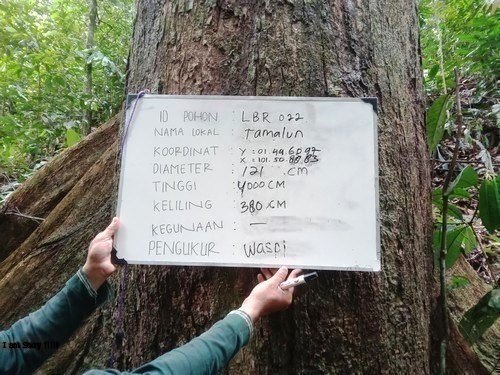 ID POHON : LBR 022
NAMA LOKAL : Tamalun
KOORDINAT : Y : 01.44.6097
X : 101.50.8883
DIAMETER : 121 CM
TINGGI : 4000 CM
KELILING : 380 CM
KEGUNAAN : —
PENGUKUR : Waspi